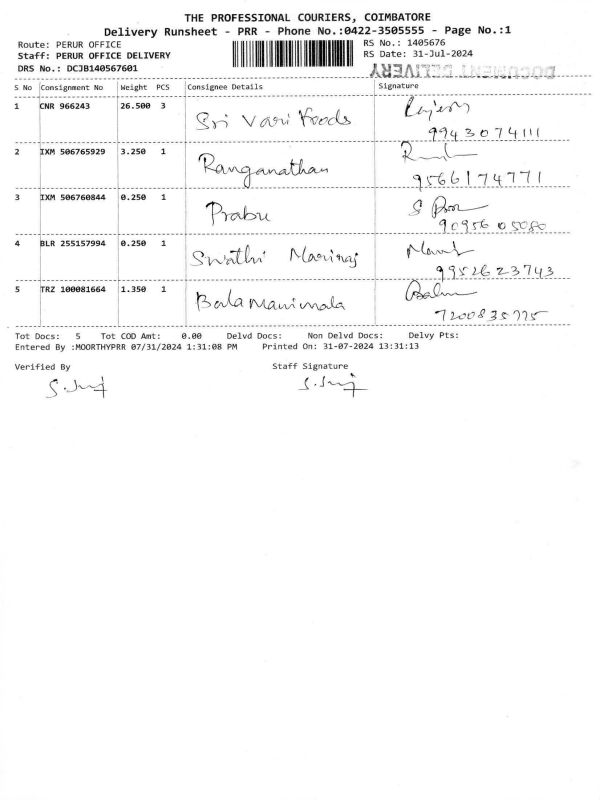 THE PROFESSIONAL COURIERS, COIMBATORE
Delivery Runsheet - PRR - Phone No.:0422-3505555 - Page No.:1
Route: PERUR OFFICE RS No.: 1405676
Staff: PERUR OFFICE DELIVERY RS Date: 31-Jul-2024
DRS No.: DCJB140567601 DOCUMENT DELIVERY
S No Consignment No Weight PCS Consignee Details Signature
1 CNR 966243 26.500 3 Sri Vari Foods Rajesh
9943074111
2 IXM 506765929 3.250 1 Ranganathan
9566174771
3 IXM 506760844 0.250 1 Prabu
9095605080
4 BLR 255157994 0.250 1 Swathi Mariraj
9952623743
5 TRZ 100081664 1.350 1 Balamanimala
7200835775
Tot Docs: 5 Tot COD Amt: 0.00 Delvd Docs: Non Delvd Docs: Delvy Pts:
Entered By :MOORTHYPRR 07/31/2024 1:31:08 PM Printed On: 31-07-2024 13:31:13
Verified By Staff Signature